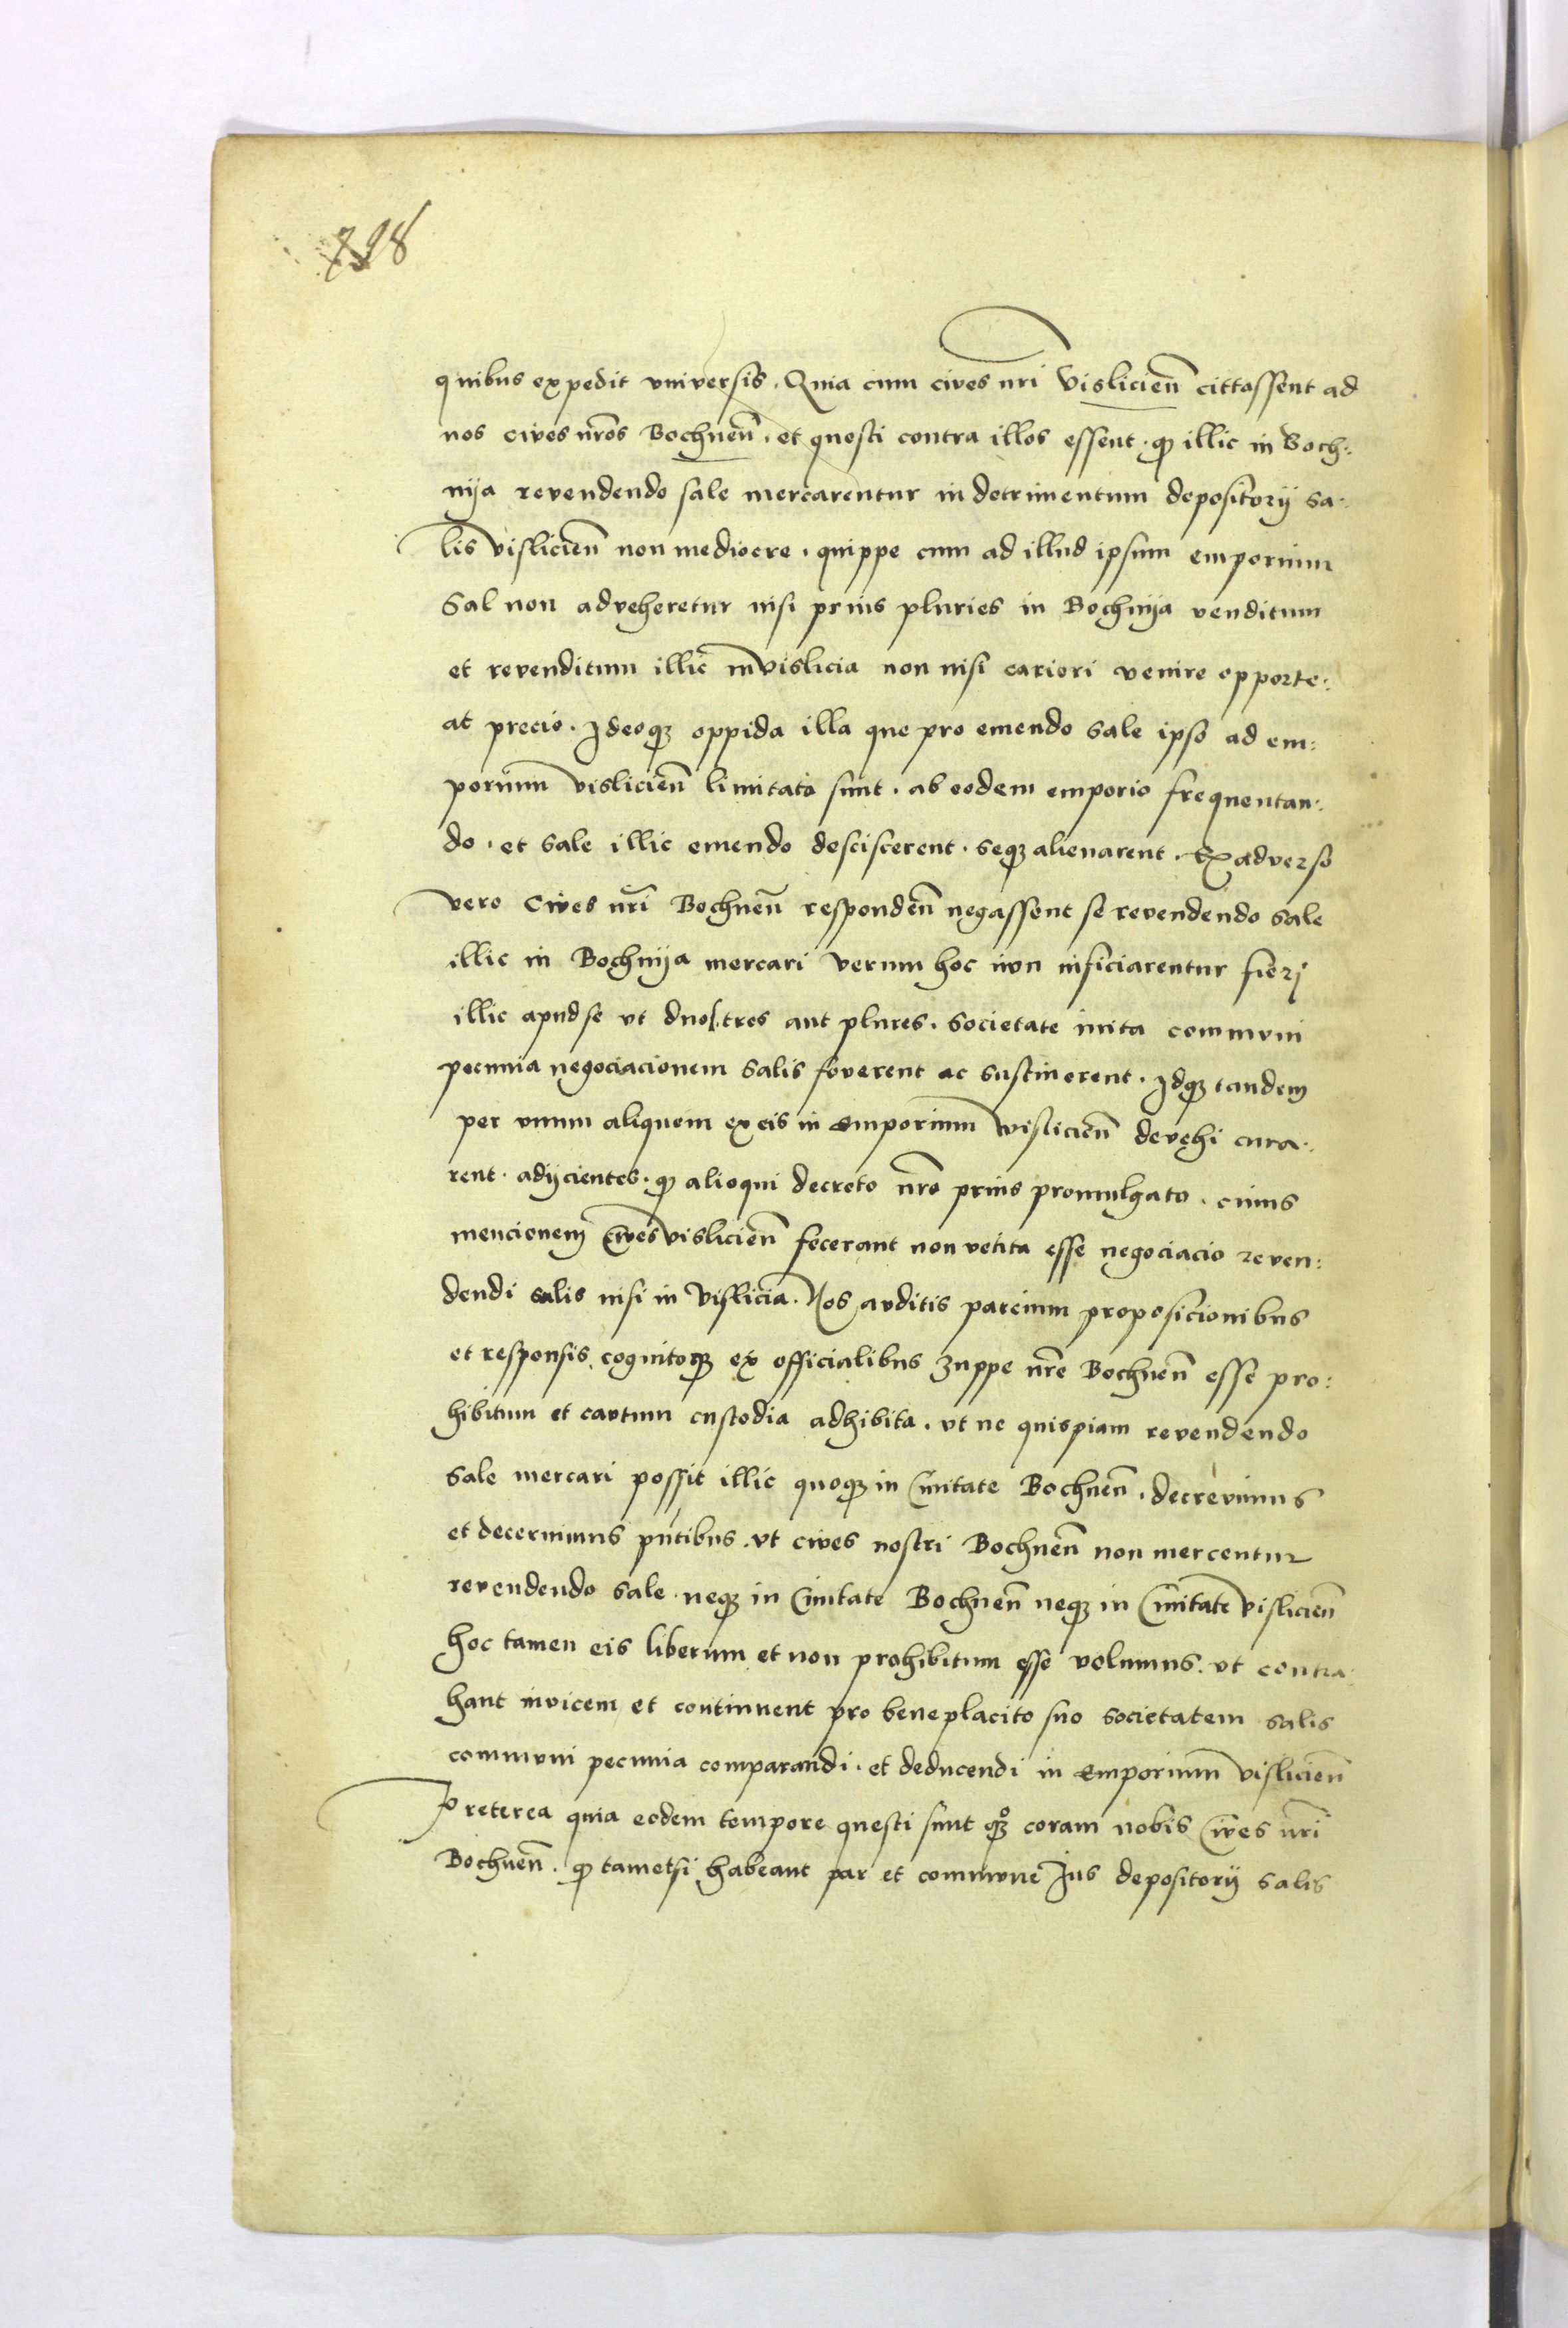 798
quibus expedit vniversis. Quia cum cives nri Vislicien̄ cittassent ad
nos cives nr̄os Bochnen̄. et questi contra illos essent. q illic in Boch:
nija revendendo sale mercarentur in detrimentum depositorij sa.
lis visliciēn non mediocre. quippe cum ad illud ipsum emporium
Sal non adveheretur nisi prius pluries in Bochnija venditum
et revenditum illic in vislicia non nisi cariori venire opporte:
at precio. Ideoqȝ oppida illa que pro emendo sale ipso ad em:
porium visliciēn limitata sunt. ab eodem emporio frequentan:
do. et sale illic emendo desciscerent. seqȝ alienarent. Ex adverso
vero Cives nr̄i Bochnēn respondēn negassent se revendendo sale
illic in Bochnija mercari verum hoc non inficiarentur fierj
illic apud se vt duo s. tres aut plures. societate inita commvni
pecunia negociacionem salis foverent ac sustinerent. Idqȝ tandem
per vnum aliquem ex eis in emporium visliciēn devehi cura.
rent. adijcientes. q alioqui decreto nr̄o prius promulgato. cuius
mencionem Cives visliciēn fecerant non vetita esse negociacio reven:
dendi salis nisi in Vislicia. Nos avditis parcium proposicionibus
et responsis. cognitoqȝ ex officialibus zuppe nr̄e Bochnēn esse pro:
hibitum et cavtum custodia adhibita. vt ne quispiam revendendo
sale mercari possit illic quoqȝ in Civitate Bochnēn. decrevimus
et decernimus pn̄tibus. vt cives nostri Bochnēn non mercentur
revendendo sale. neqȝ in Civitate Bochnēn neqȝ in Civitate visliciēn
hoc tamen eis liberum et non prohibitum esse volumus. vt contra.
hant invicem et continuent pro beneplacito suo societatem salis
commvni pecunia comparandi. et deducendi in emporium visliciēn
Preterea quia eodem tempore questi sunt qȝ coram nobis Cives nr̄i
Bochnēn. q tametsi habeant par et commvne Jus depositorij salis